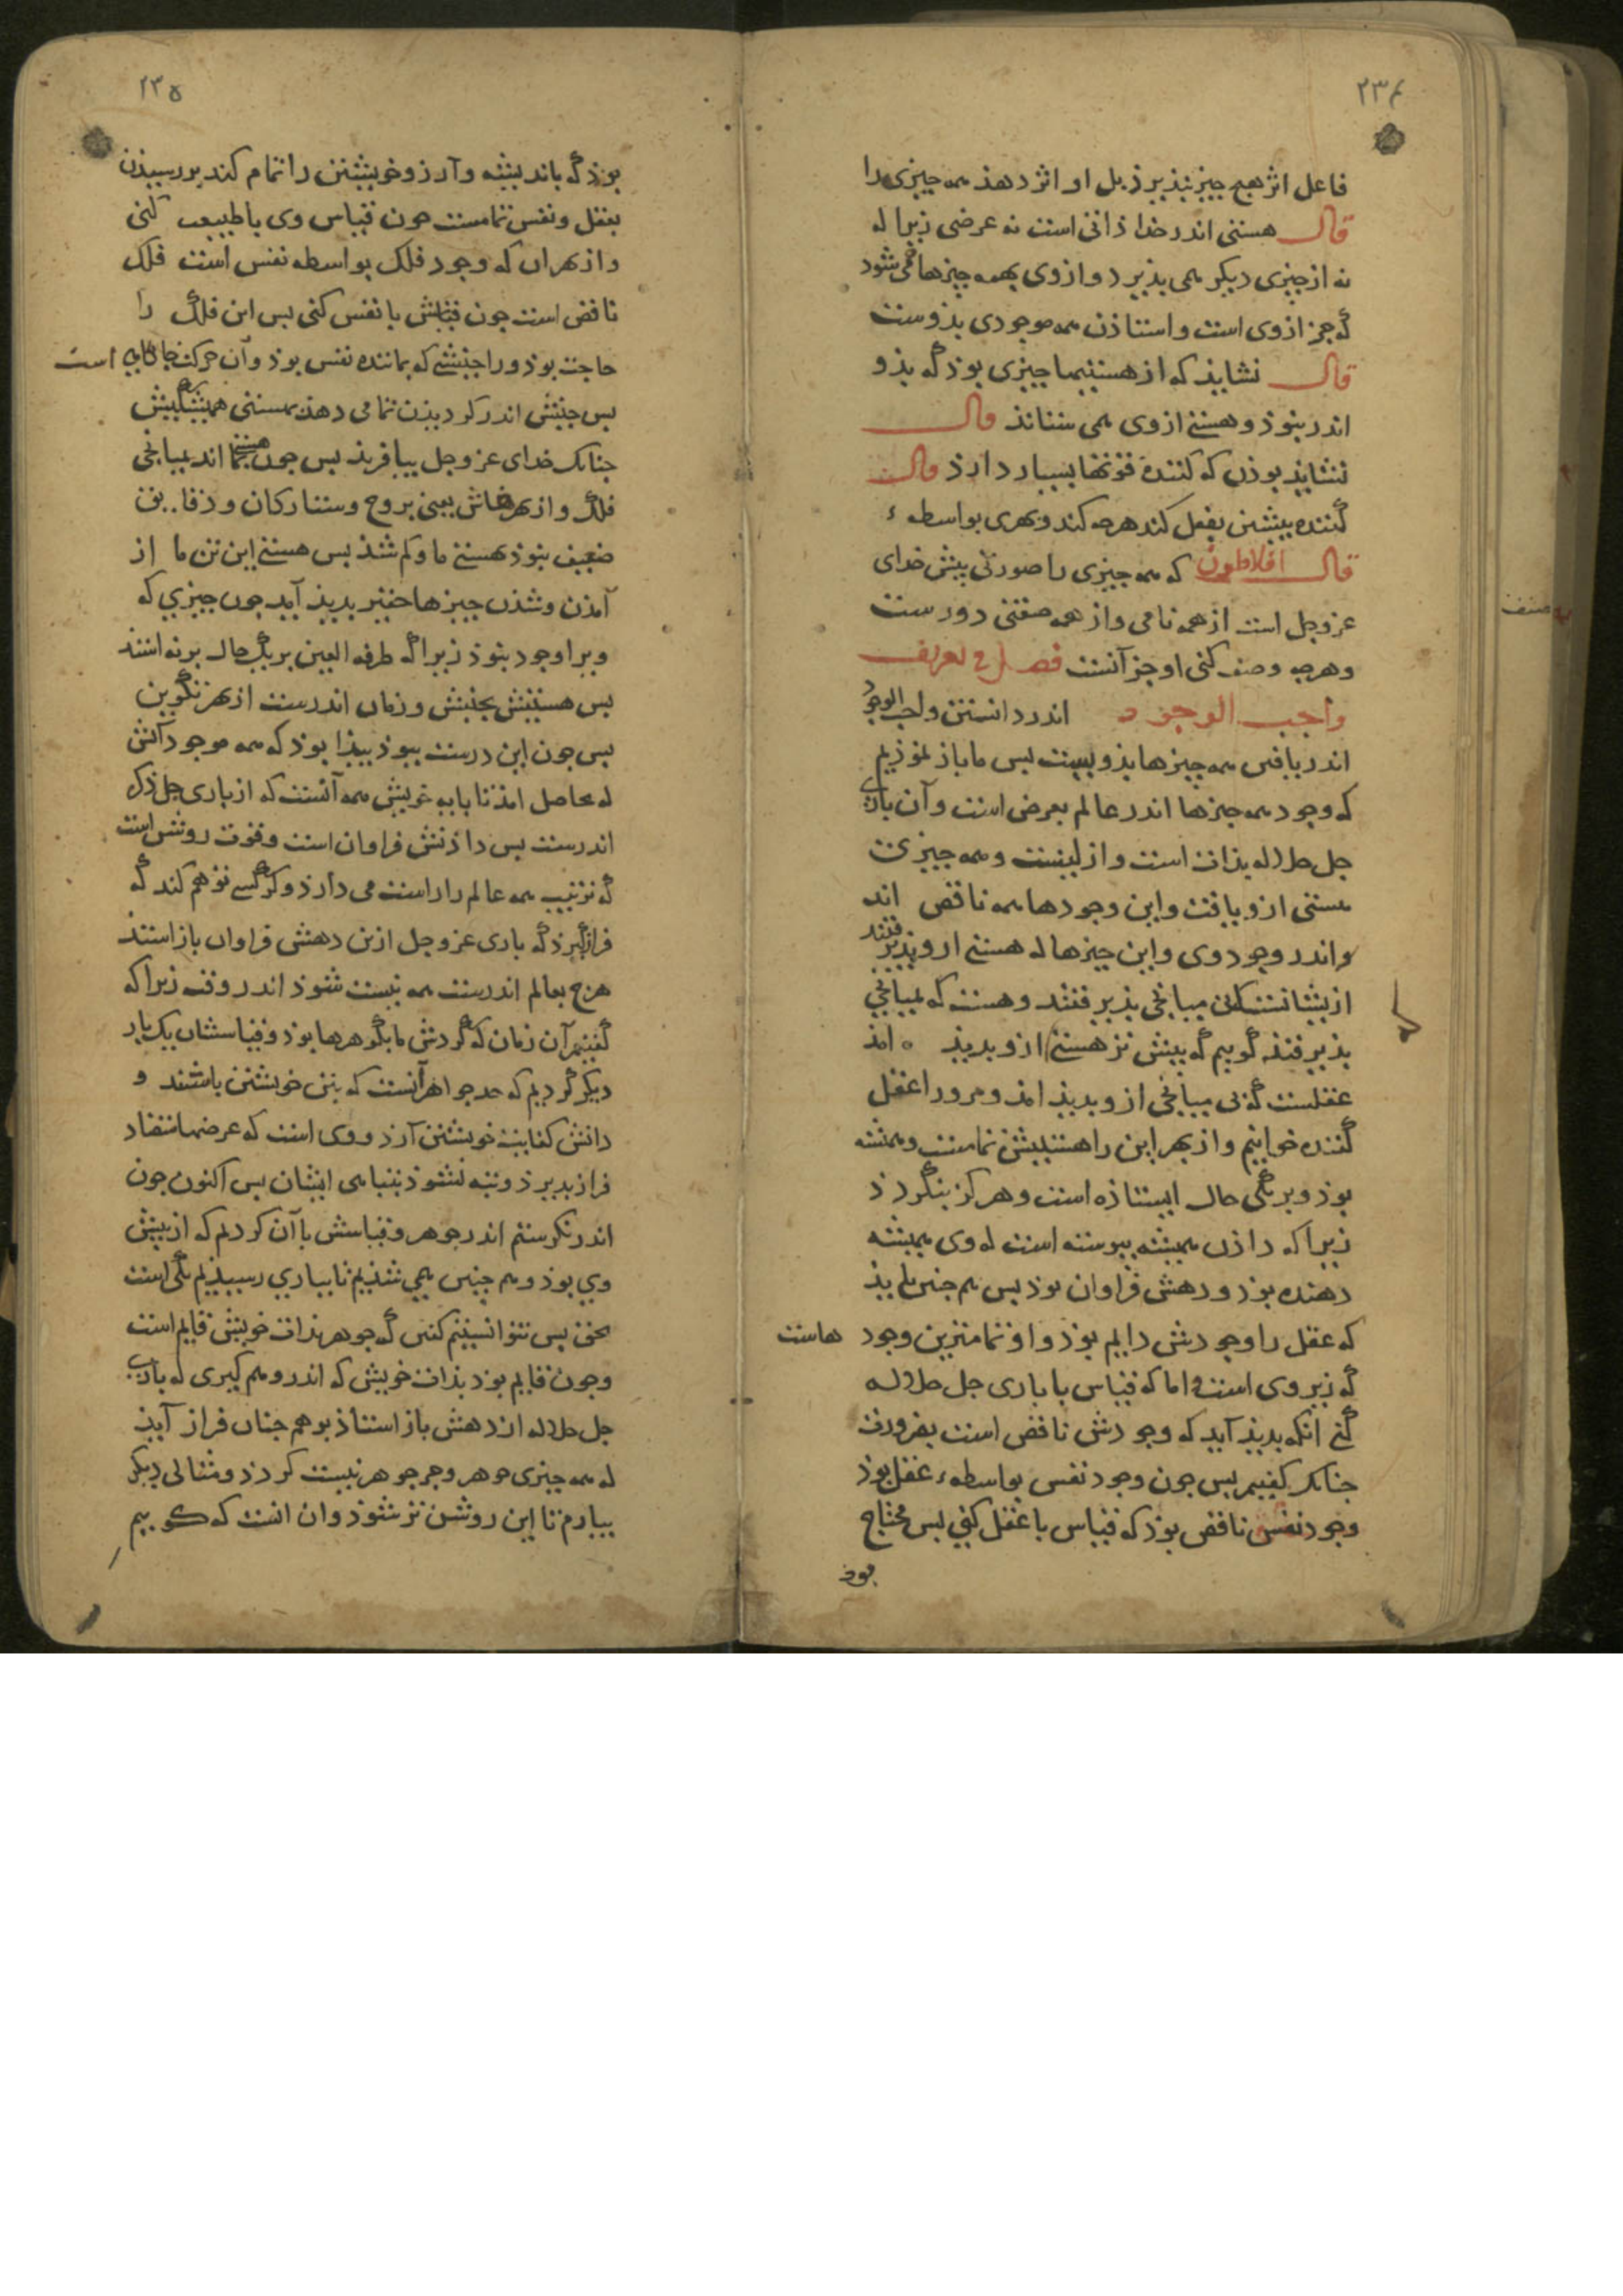 ٢٣٤
فاعل اثر هیچ چیز نپذیرذ بل او اثر دهذ همه چیزی را
قال هستی اندر خدا ذاتی است نه عرضی زیرا که
نه از چیزی دیکر همی پذیرد و از وی بهمه چیزها همی شود
که جز از وی است و استاذن همه موجودی بذوست
قال نشایذ که از هستیها چیزی بوذ که بذو
اندر نبوذ و هستی از وی همی ستانذ قال
نشایذ بوذن که کننده قوتها بسیار دارذ قال
کننده پیشین بفعل کند هرچه کند و بهری بواسطه
قال افلاطون که همه چیزی را صورتی پیش خدای
عزوجل است از همه نامی و از همه صفتی دورست
وهرچه وصف کنی او جز آنست فصل فی تعریف
واجب الوجود اندر دانستن واجب الوجود
اندر یافتن همه چیزها بذو نیست پس ما باز نموذیم
که وجود همه چیزها اندر عالم بعرض است و آن باری
جل جلاله بذات است و ازلیست و همه چیزی
هستی ازو یافت و این وجودها همه ناقص اند
واندر وجود وی و این چیزها که هستی ازو پذیرفتند
ازیشانست کبی میانجی پذیرفتند و هست که بمیانجی
پذیرفتند گوییم که پیش تر هستی ازو بدیذ امذ
عقلست که بی میانجی ازو بدیذ امذ و مرورا عقل
کننده خوانیم و از بهر این را هستییش تمامست و همیشه
بوذ و بر یکی حال ایستاذه است و هرکز بنگردذ
زیرا که داذن همیشه پیوسته است که وی همیشه
دهنده بوذ و دهش فراوان بوذ پس هم چنین بایذ
که عقل را وجودش دایم بوذ و او تمامترین وجود هاست
که زیر وی است و اما که قیاس با باری جل جلاله
کنی انکه بدیذ آید که وجودش ناقص است بضرورت
چنانک کفتیم پس چون وجود نفس بواسطه عقل بوذ
وجود نفس ناقص بوذ که قیاس با عقل کنی پس محتاج
بوذ
صنف
٢٣٥
بوذ که باندیشه و آرزو خویشتن را تمام کند بر رسیذن
بعقل و نفس تمامست چون قیاس وی با طبیعت کنی
و از بهر ان که وجود فلک بواسطه نفس است فلک
ناقص است چون قیاسش با نفس کنی پس این فلک را
حاجت بوذ ورا جنبشی که بماننده نفس بوذ و آن حرکت جایکاهی است
پس جنبش اندر کردیدن تمامی دهذ بهستی همیشکیش
چنانک خدای عزوجل بیافریذ پس چون هستیها اند بمیانجی
فلک و از بهر یعنی بروج و ستارکان و دقایق
ضعیف بنوذ هستی ما و کم شذ پس هستی این تن ما از
آمذن و شذن چیزها حقیر بدیذ آید چون چیزی که
ویرا وجود بنوذ زیرا که طرفه العین بر یک حال برنه استذ
پس هستیش بجنبش و زمان اندرست از بهر نکوین
پس چون این درست ببوذ پیذا بوذ که همه موجود آنش
که حاصل امذ تا بپایه خویش همه آنست که از باری جل ذکره
اندرست پس داذنش فراوان است و قوت روشن است
که ترتیب همه عالم را راست می دارذ و کر کسی توهم کند که
فراز گیرذ که باری عزوجل ازین دهش فراوان باز استذ
هرچ بعالم اندرست همه نیست شوذ اندر وقت زیرا که
کفتیم آن زمان که گردش ما بگوهرها بوذ و قیاسشان یک بار
دیکر کردیم که حد جواهر آنست که بتن خویشتن باشند و
دانش کفایت خویشتن آرذ و وی است که عرضها متضاد
فراز پذیرذ و تبه نشوذ بتباهی ایشان پس اکنون چون
اندر نکرستم اندر جوهر و قیاسش با آن کردیم که از پیش
وی بوذ و هم چنین همی شذیم تا بباری رسیذیم یکی است
بحق پس نتوانستیم کفتن که جوهر بذات خویش قایم است
و چون قایم بوذ بذات خویش که اندر وهم گیری که باری
جل جلاله از دهش باز استاذ بوهم چنان فراز آیذ
که همه چیزی جوهر و جز جوهر نیست کردذ و مثالی دیکر
بیارم تا این روشن تر شوذ و ان انست که گوییم